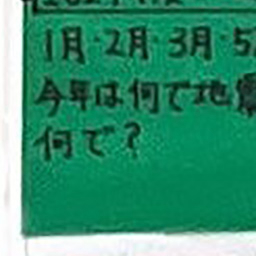 1月・2月・3月・5
今年は何で地震
何で?